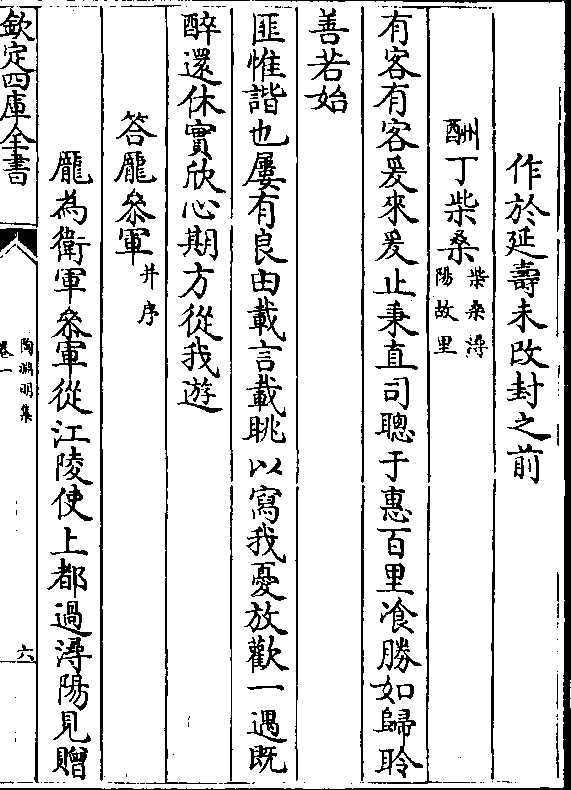 作於延壽未改封之前
酬丁柴桑柴桑潯陽故里
有客有客爰來爰止秉直司聰于惠百里飡勝如歸聆
善若始
匪惟諧也屢有良由載言載眺以寫我憂放歡一遇既
醉還休實欣心期方從我遊
答龐叅軍并序
龐為衛軍叅軍從江陵使上都過潯陽見贈
欽定四庫全書
陶淵明集
卷一
六